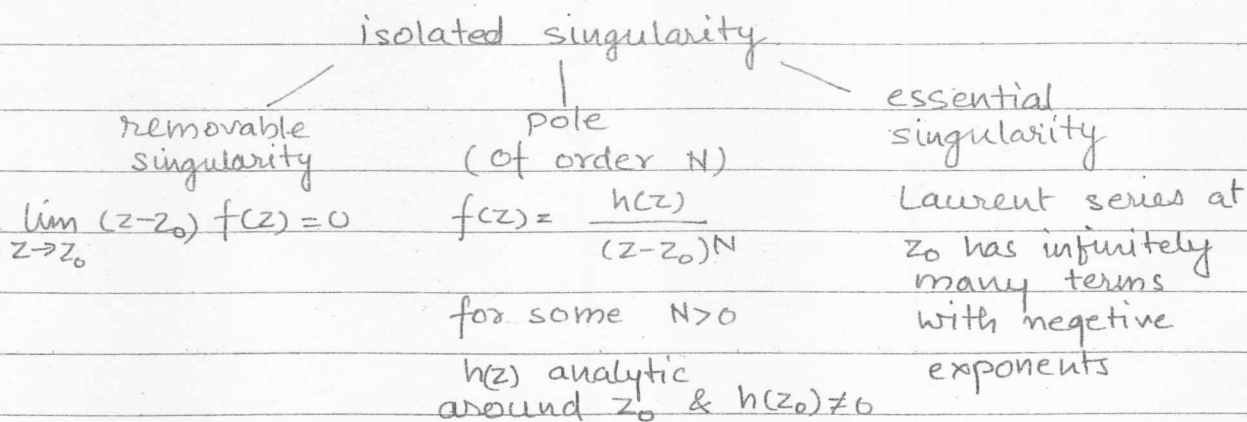 isolated singularity
removable
singularity
lim (z-z₀) f(z) = 0
z→z₀
pole
(of order N)
f(z) = h(z) / (z-z₀)N
for some N>0
h(z) analytic
around z₀ & h(z₀)≠0
essential
singularity
Laurent series at
z₀ has infinitely
many terms
with negetive
exponents